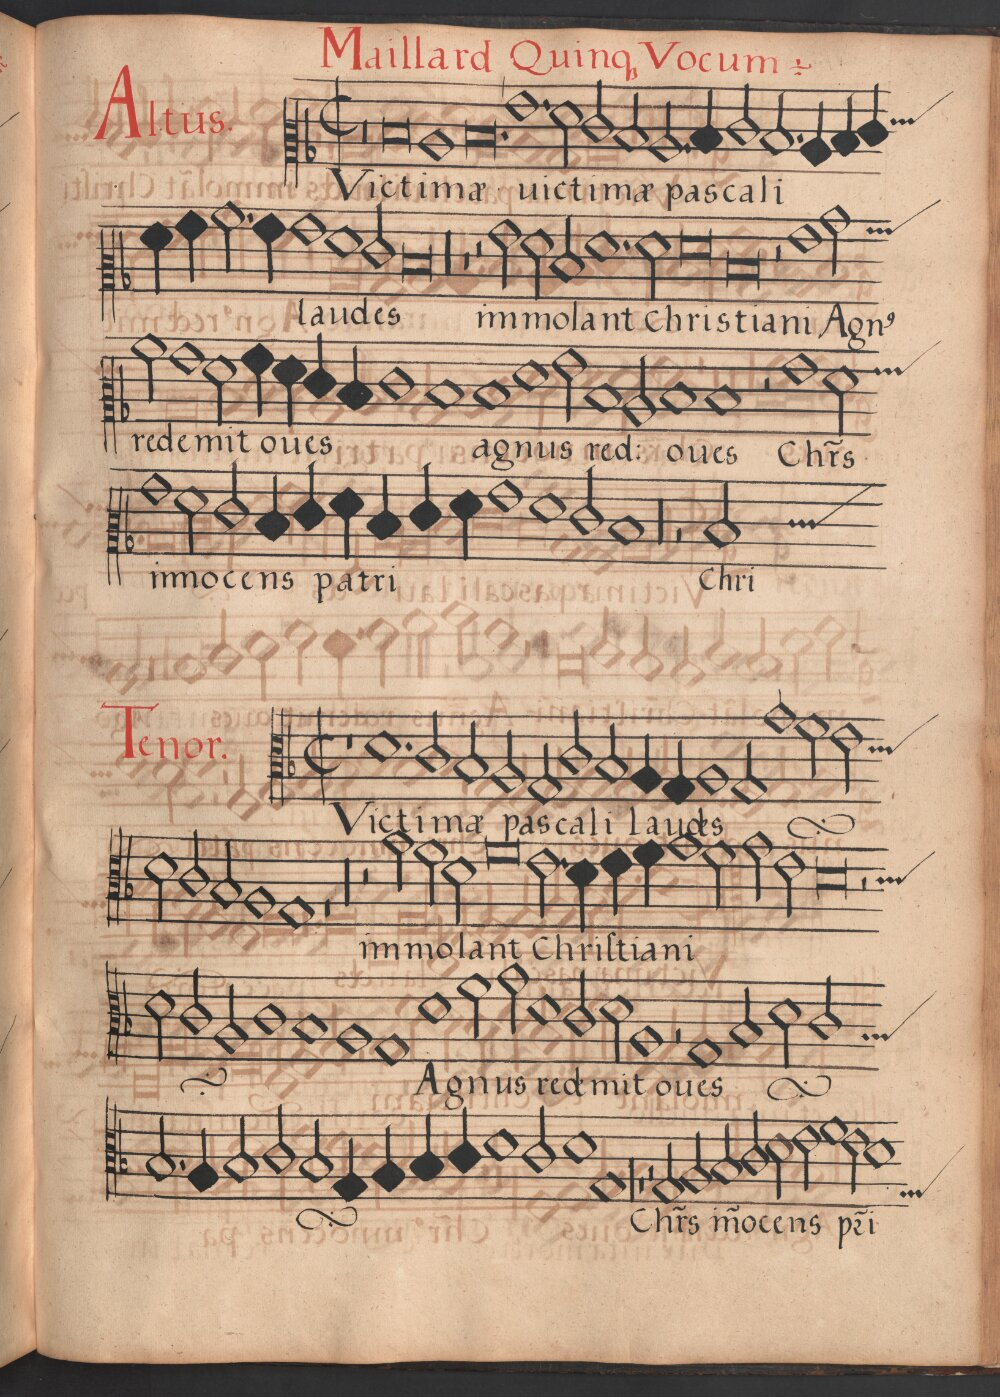 Maillard Quinq Vocum
Altus.
Victimæ uictimæ pascali
laudes immolant Christiani Agnꝰ
redemit oues agnus red: oues Chr̃s
innocens patri Chri
Tenor.
Victimæ pascali laudes
immolant Chriſtiani
Agnus redemit oues
Chr̃s im̃ocens pr̃i